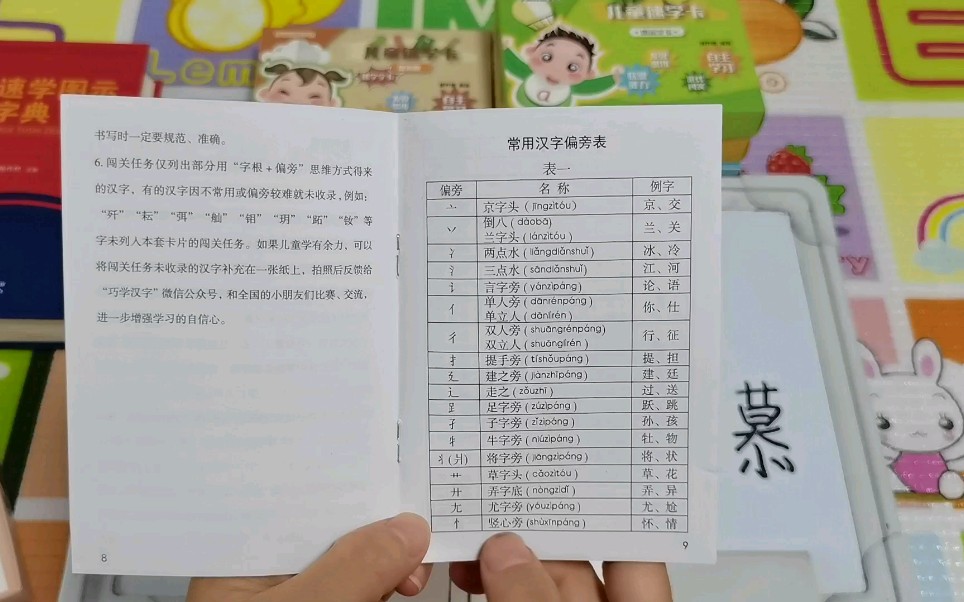 速学图示
字典
Lem
儿童速学卡
自主
儿童速学卡
自主
学习
书写时一定要规范、准确。
6. 闯关任务仅列出部分用“字根+偏旁”思维方式得来
的汉字，有的汉字因不常用或偏旁较难就未收录，例如：
“歼”“耘”“弭”“舢”“钼”“玥”“跖”“钕”等
字未列入本套卡片的闯关任务。如果儿童学有余力，可以
将闯关任务未收录的汉字补充在一张纸上，拍照后反馈给
“巧学汉字”微信公众号，和全国的小朋友们比赛、交流，
进一步增强学习的自信心。
8
常用汉字偏旁表
表一
偏旁 名 称 例字
亠 京字头 ( jīngzìtóu) 京、交
丷 倒八 ( dàobā) 兰、关
兰字头 ( lánzìtóu )
冫 两点水 ( liǎngdiǎnshuǐ ) 冰、冷
氵 三点水 ( sāndiǎnshuǐ ) 江、河
讠 言字旁 ( yánzìpáng ) 论、语
亻 单人旁 ( dānrénpáng ) 你、仕
单立人 ( dānlìrén )
彳 双人旁 ( shuāngrénpáng) 行、征
双立人 ( shuānglìrén )
扌 提手旁 ( tíshǒupáng ) 提、担
廴 建之旁 ( jiànzhīpáng ) 建、廷
辶 走之 ( zǒuzhī ) 过、送
𧾷 足字旁 ( zúzìpáng ) 跃、跳
孑 子字旁 ( zǐzìpáng ) 孙、孩
牜 牛字旁 ( niúzìpáng ) 牡、物
丬(爿) 将字旁 ( jiàngzìpáng ) 将、状
艹 草字头 ( cǎozìtóu ) 草、花
廾 弄字底 ( nòngzìdǐ ) 弄、异
尢 尤字旁 (yóuzìpáng ) 尤、尬
忄 竖心旁 (shùxīnpáng ) 怀、情
9
慕